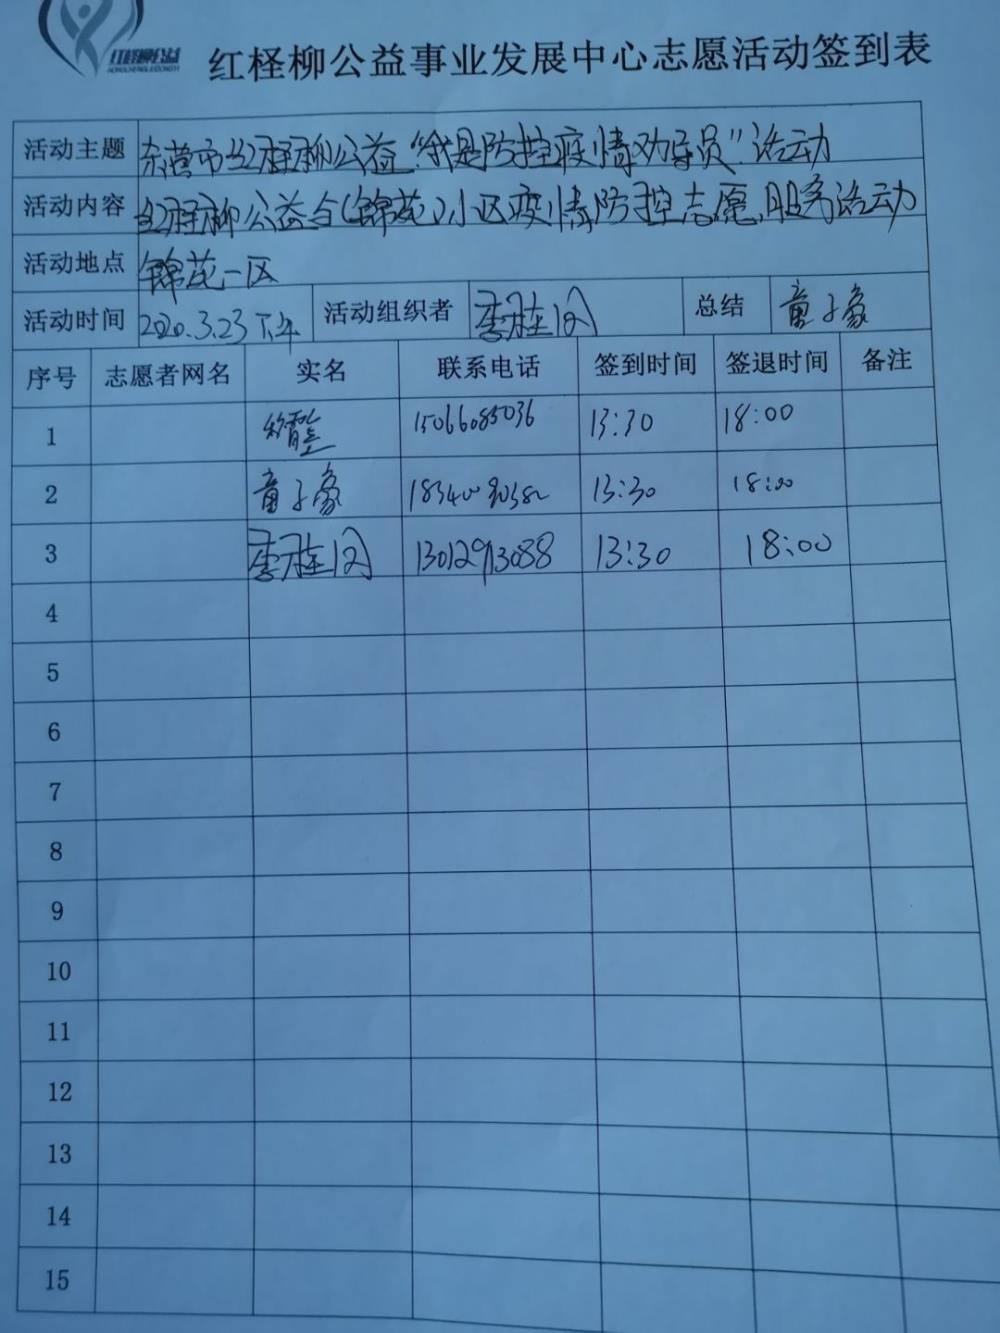 红柽柳公益
HONGCHENGLIUGONGYI
红柽柳公益事业发展中心志愿活动签到表
活动主题 东营市红柽柳公益“我是防控疫情劝导员”活动
活动内容 红柽柳公益与(锦苑)小区疫情防控志愿服务活动
活动地点 锦苑一区
活动时间 2020.3.23下午 活动组织者 李桂 总结 童子豪
序号 志愿者网名 实名 联系电话 签到时间 签退时间 备注
1 15066085036 13:30 18:00
2 童子豪 13:30 18:00
3 李桂 13012913088 13:30 18:00
4
5
6
7
8
9
10
11
12
13
14
15